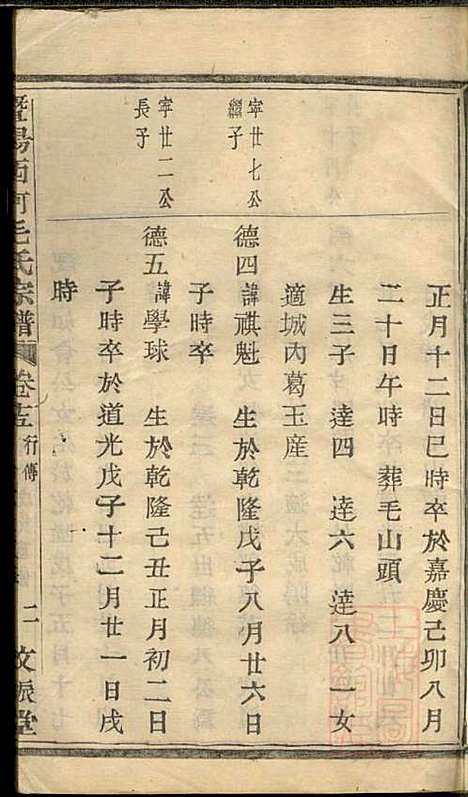 正月十二日巳時卒於嘉慶己卯八月
二十日午時 葬毛山頭
生三子 達四 達六 達八 一女
適城內葛玉產
寧廿七公
繼子
德四 諱祺魁 生於乾隆戊子八月廿六日
子時卒
寧廿二公
長子
德五 諱學球 生於乾隆己丑正月初二日
子時卒於道光戊子十二月廿一日戌
時
暨陽西河毛氏宗譜 卷 行傳 二 文 堂